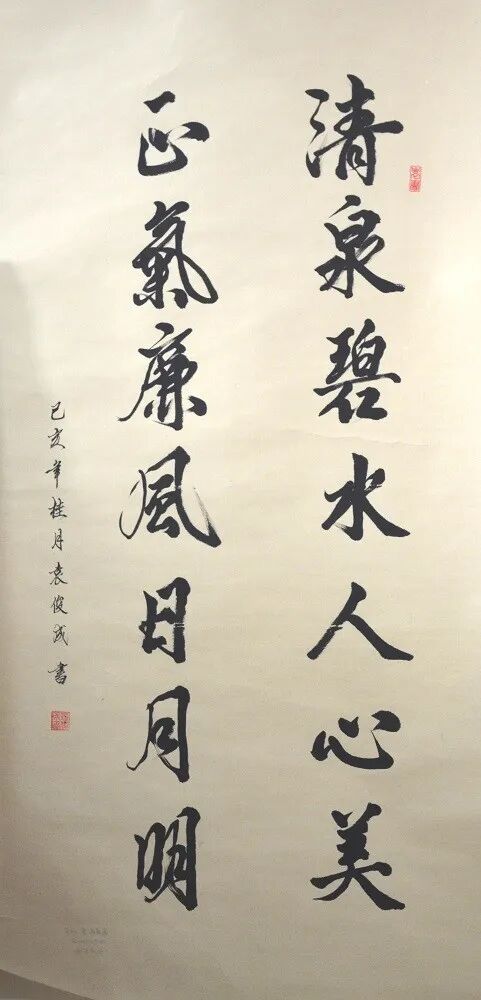 清泉碧水人心美
正氣廉風日月明
己亥年桂月袁俊成書